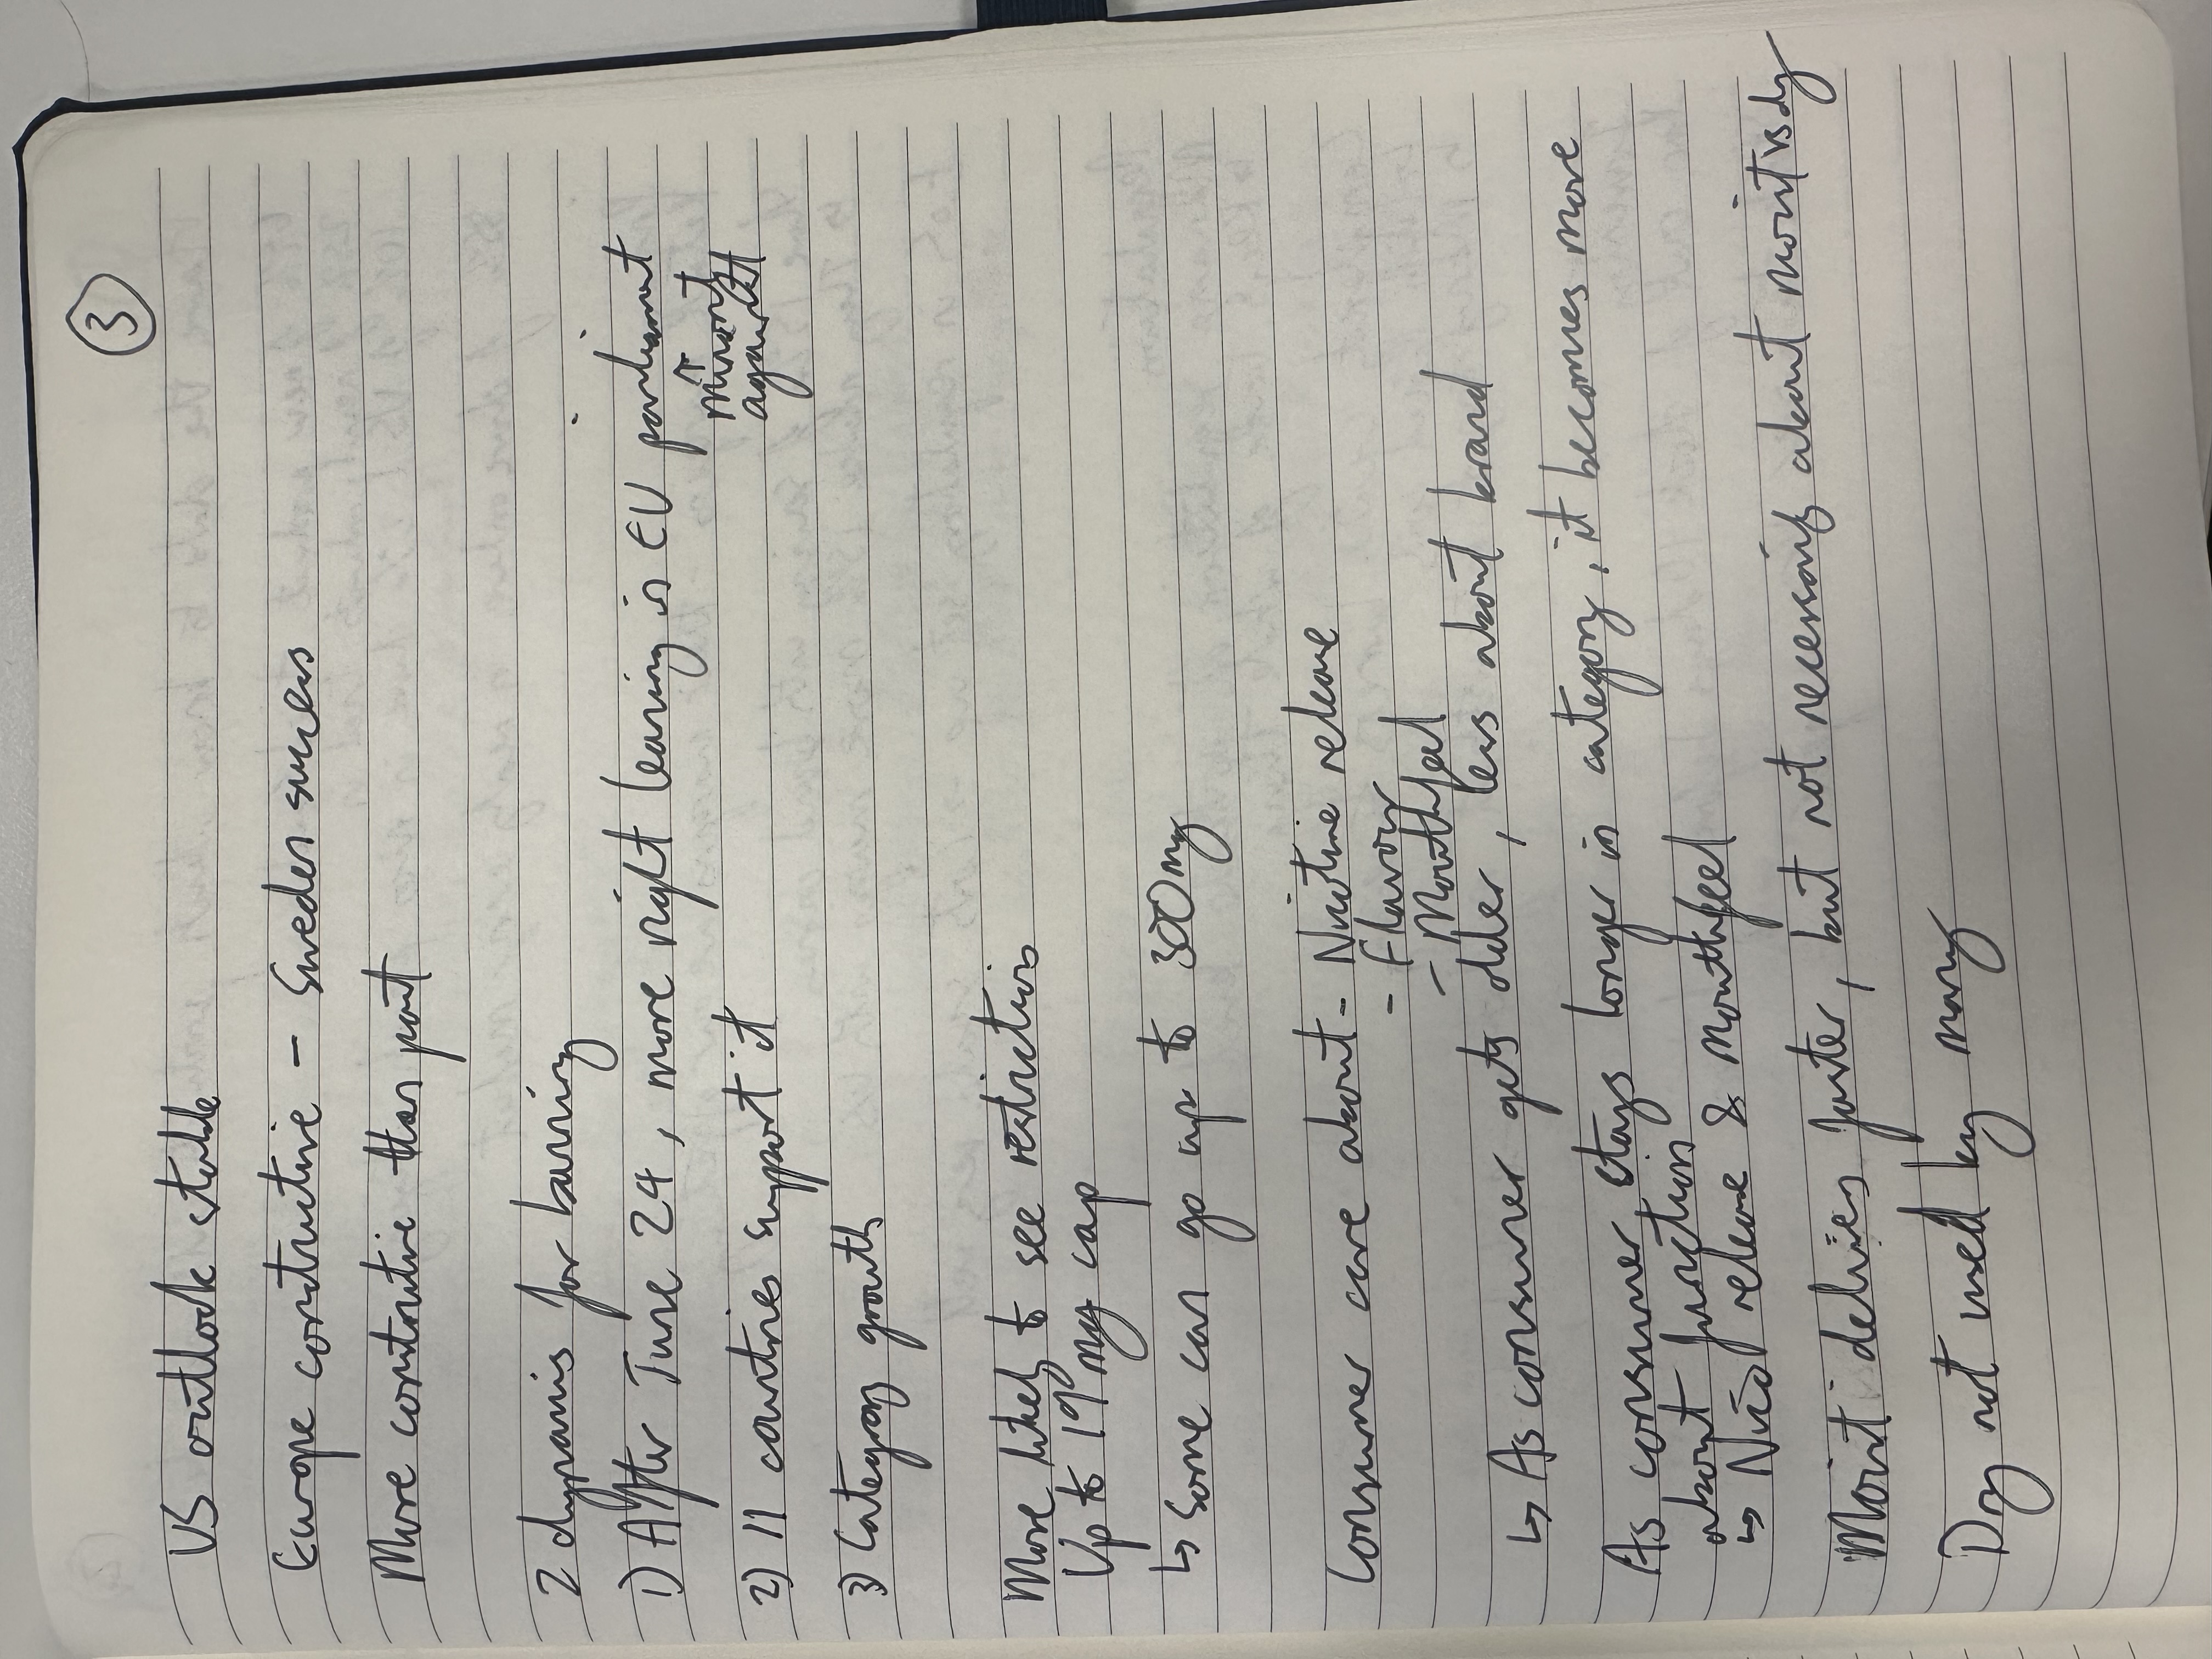 3
US outlook stable
Europe constructive - Sweden success
More constructive than past
2 dynamics for banning
1) After June 24, more right leaning in EU parliament
↑
minority
against
2) 11 countries support it
3) Category growth
More likely to see restrictions
Up to 19 mg cap
↳ Some can go up to 300mg
Consumer care about - Nicotine release
- Flavour
- Mouthfeel
↳ As consumer gets older, less about brand
As consumer stays longer in category, it becomes more
about function
↳ Nico release & Mouthfeel
Moist delivers faster, but not necessarily about moist vs dry
Dry not used by many